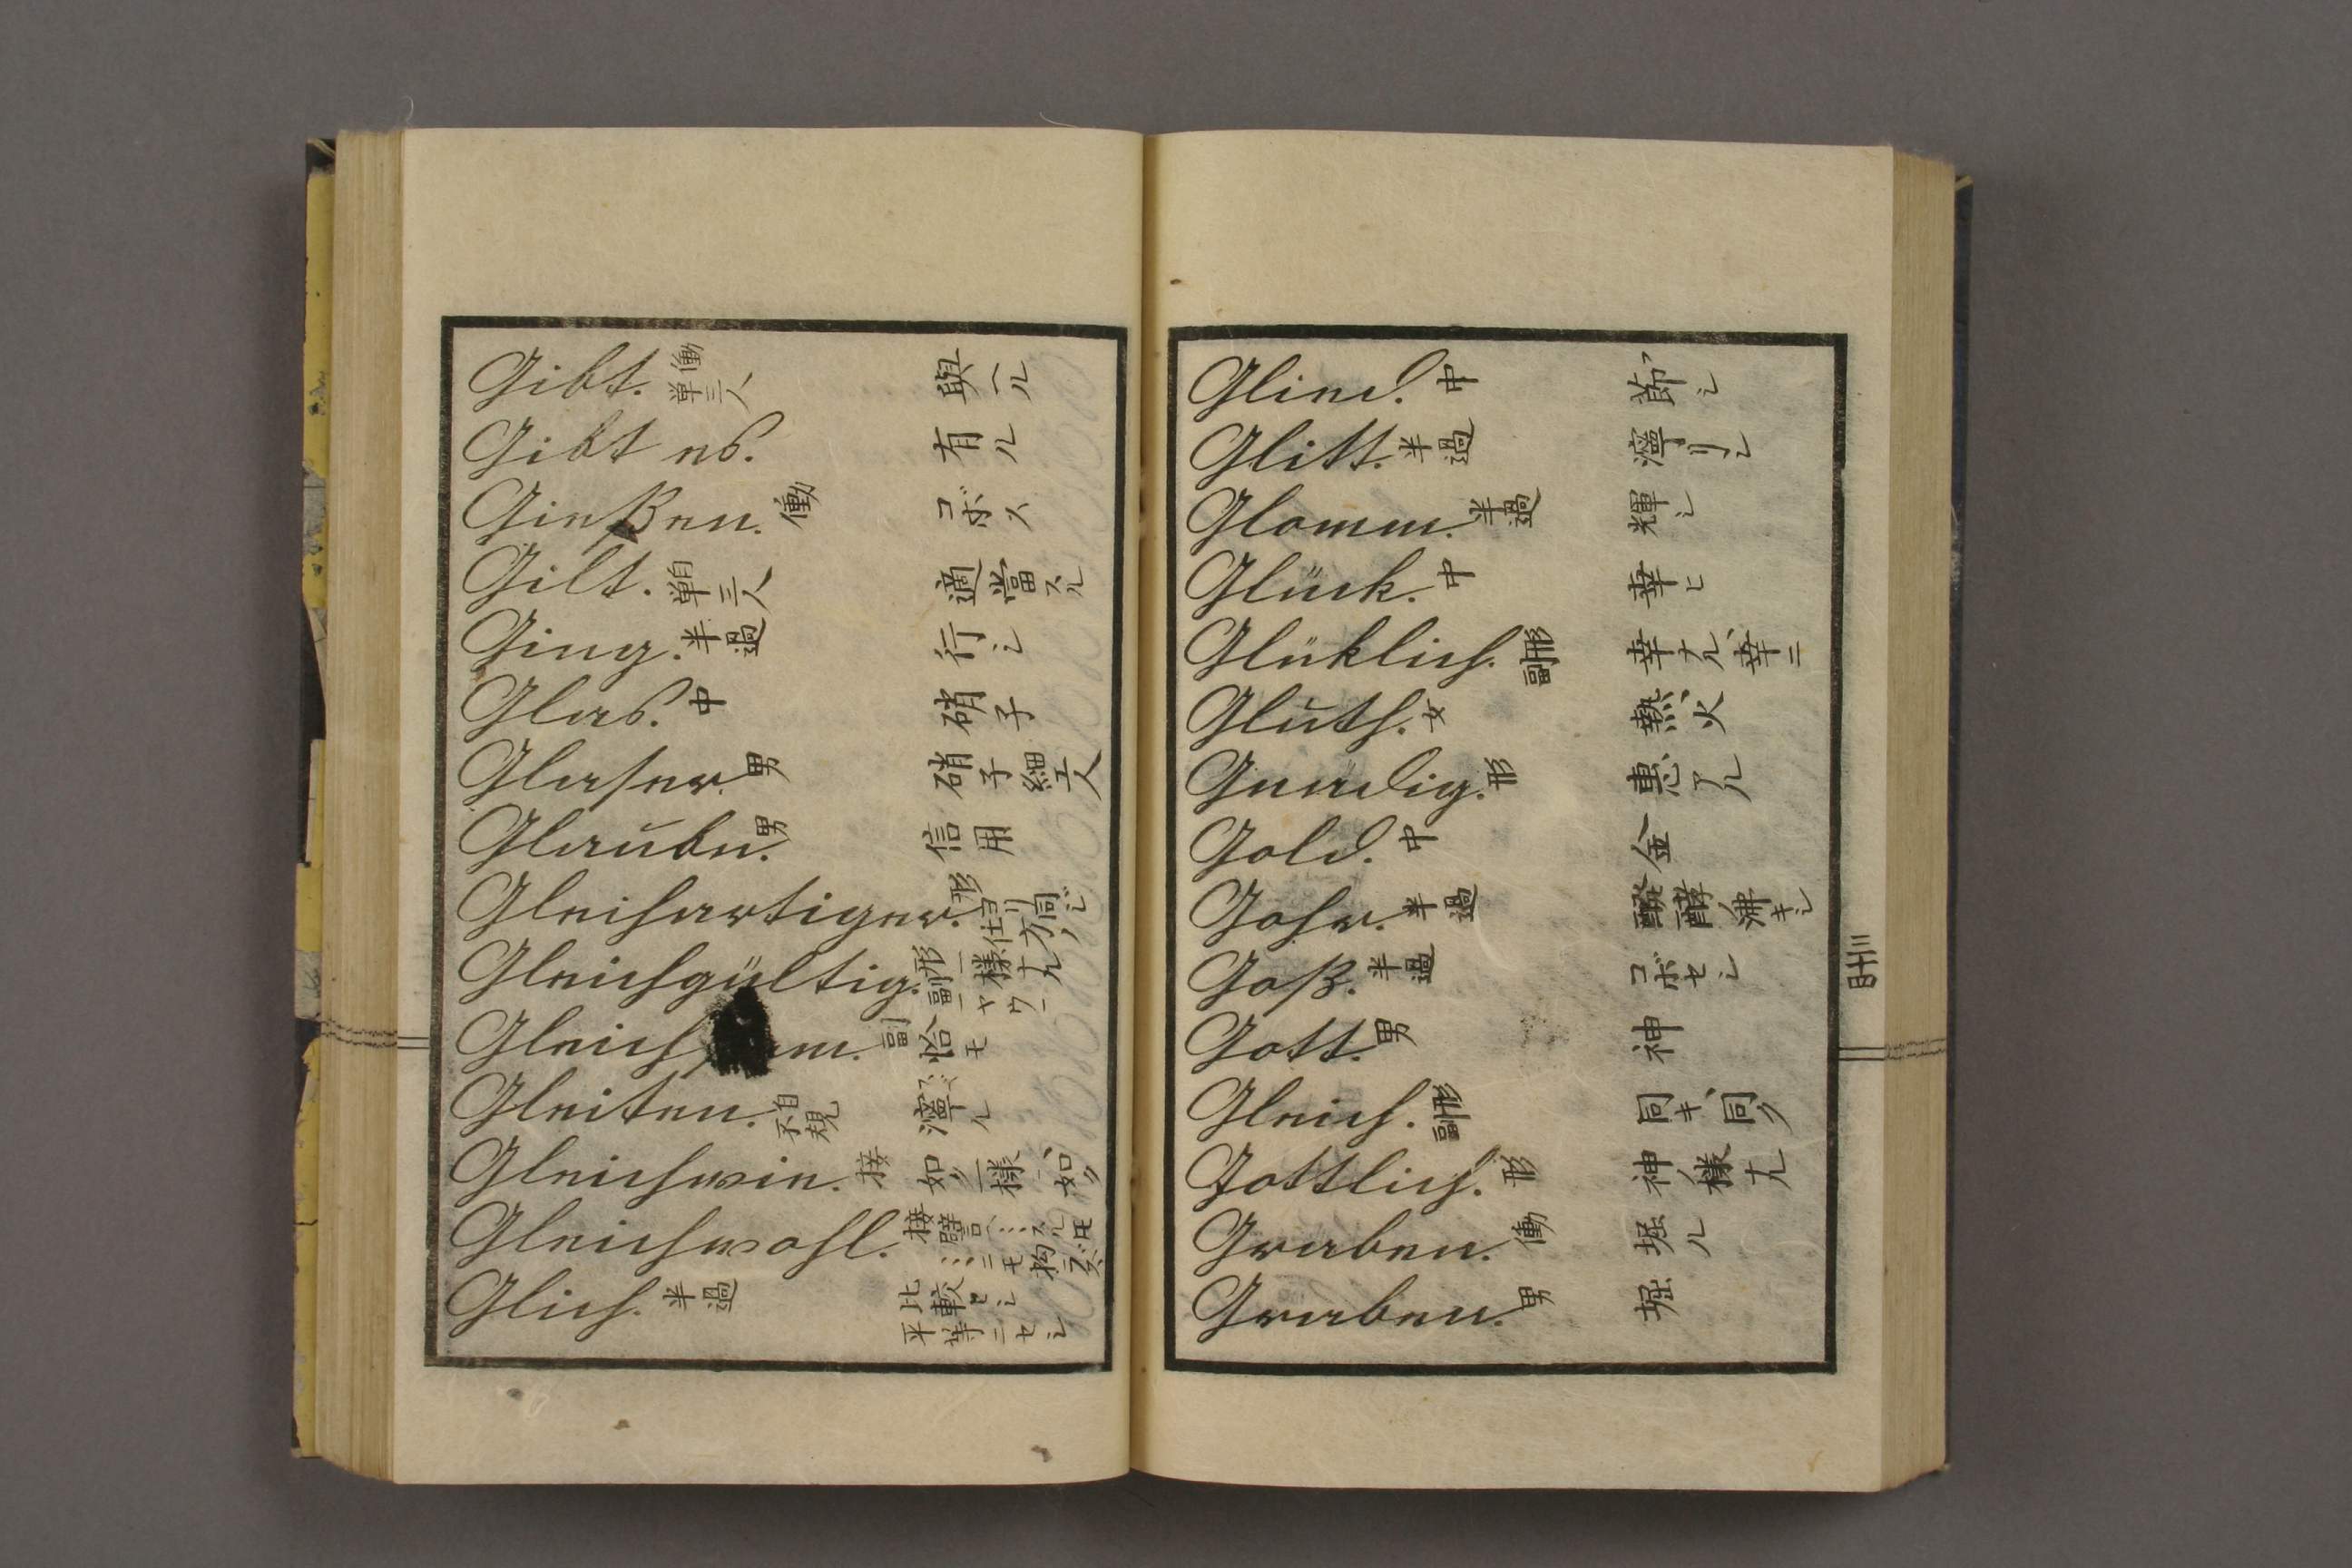 Gibt. 働単三人 與ヘル
Gibt es. 有ル
Gießen. 働 コボス
Gilt. 自単三人 適當スル
Ging. 半過 行シ
Glas. 中 硝子
Glaser. 男 硝子細工人
Glaube. 男 信用
Gleichartiger. 形 同シ仕方ノ
Gleichgültig. 形副 一様ナル 一ヤウニ
Gleich m. 副 恰モ
Gleiten. 自不規 濘ベル
Gleichwie. 接 如ク一様、如ク
Gleichwohl. 接 譬ヘ…スル圧 …ニモ拘ラズ
Glich. 半過 比較セシ 平等ニセシ
Glied. 中 節シ
Glitt. 半過 濘リシ
Glomm. 半過 輝シ
Glück. 中 幸ヒ
Glüklich. 形副 幸ナル、幸ニ
Gluth. 女 熱、火
Gnadig. 形 惠アル
Gold. 中 金
Gohr. 半過 醗酵、沸キシ
Goß. 半過 コボセシ
Gott. 男 神
Gleich. 形副 同キ、同ク
Gottlich. 形 神ノ様ナル
Graben. 働 堀ル
Graben. 男 堀